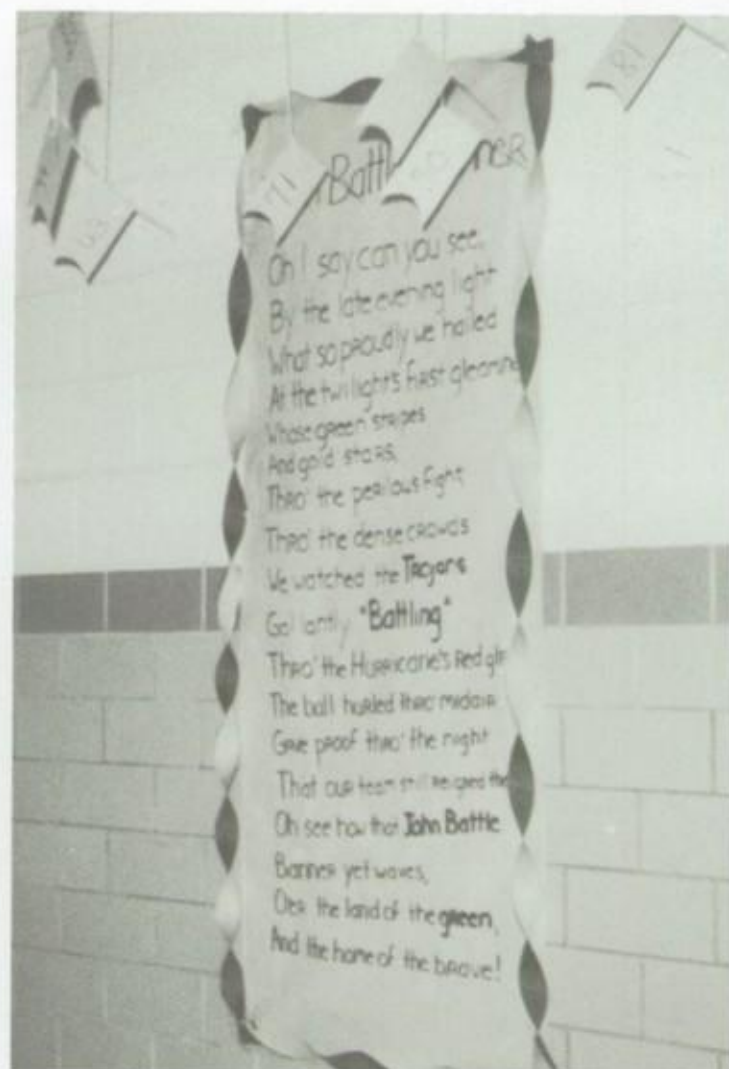 71
81
Oh I say can you see,
By the late evening light
What so proudly we hailed
At the twilight's first gleaming
Whose green stripes
And gold stars,
Thro' the perilous fight
Thro' the dense crowds
We watched the Trojans
Gallantly "Battling"
Thro' the Hurricane's Red
The ball hurled thro' midair
Gave proof thro' the night
That our team still reigned
Oh see how that John Battle
Banner yet waves,
Oer the land of the green,
And the home of the brave!